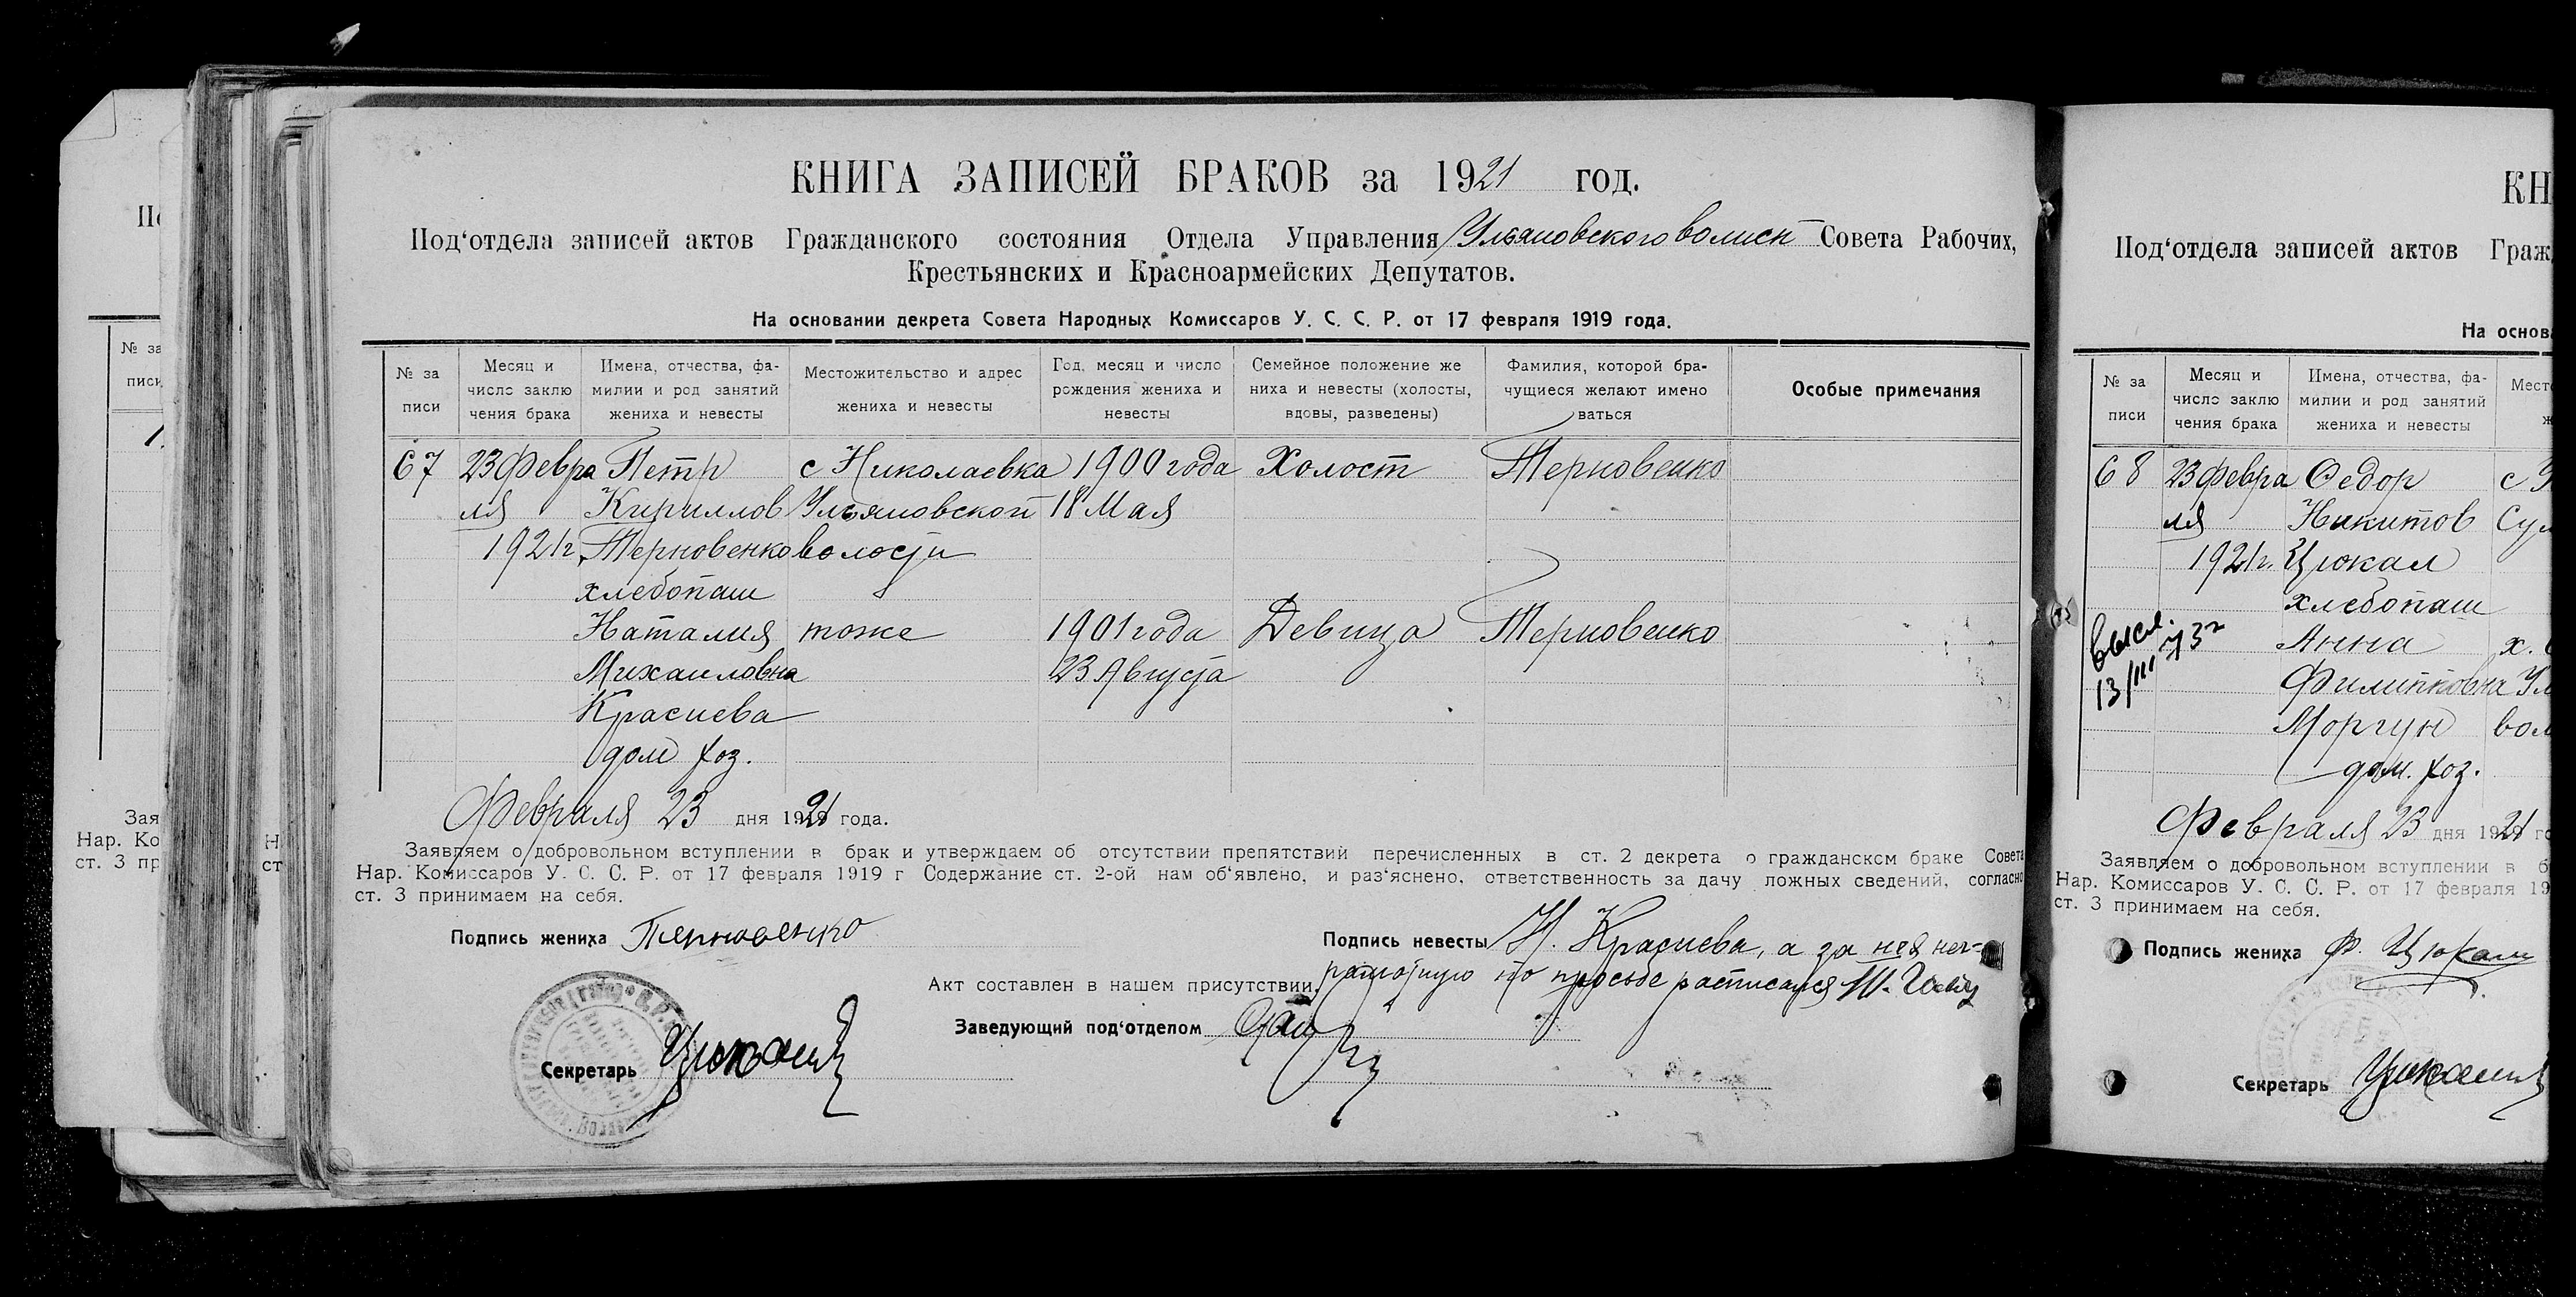 КНИГА ЗАПИСЕЙ БРАКОВ за 1921 год.
Под‘отдела записей актов Гражданского состояния Отдела Управления Ульяновского волисп Совета Рабочих,
Крестьянских и Красноармейских Депутатов.
На основании декрета Совета Народных Комиссаров У. С. С. Р. от 17 февраля 1919 года.
№ за писи
Месяц и число заклю чения брака
Имена, отчества, фа- милии и род занятий жениха и невесты
Местожительство и адрес жениха и невесты
Год, месяц и число рождения жениха и невесты
Семейное положение же ниха и невесты (холосты, вдовы, разведены)
Фамилия, которой бра- чущиеся желают имено ваться
Особые примечания
67 23 Февра Петр с Николаевка 1900 года Холост Терновенко
ля Кириллов Ульяновской 18 Мая
1921 г. Терновенко волости
хлебопаш
Наталия тоже 1901 года Девица Терновенко
Михаиловна 23 Августа
Красиева
дом хоз.
Февраля 23 дня 1921 года.
Заявляем о добровольном вступлении в брак и утверждаем об отсутствии препятствий перечисленных в ст. 2 декрета о гражданском браке Совета
Нар. Комиссаров У. С. С. Р. от 17 февраля 1919 г Содержание ст. 2-ой нам об‘явлено, и раз‘яснено, ответственность за дачу ложных сведений, согласно
ст. 3 принимаем на себя.
Подпись жениха Терновенко
Подпись невесты Н. Красиева, а за нея нег-
рамотную по просьбе расписался
Акт составлен в нашем присутствии,
Заведующий под‘отделом
Секретарь
КН
Под‘отдела записей актов Граж
На основ
№ за писи
Месяц и число заклю чения брака
Имена, отчества, фа- милии и род занятий жениха и невесты
Мест
68 23 Февра Федор с
ля Никитов Сул
1921 г. Цюкал
хлебопаш
Анна х.
Филипповна Ул
Моргун вол
дом. хоз.
высл.
13/III 73 г
Февраля 23 дня 1921 го
Заявляем о добровольном вступлении в б
Нар. Комиссаров У. С. С. Р. от 17 февраля 19
ст. 3 принимаем на себя.
Подпись жениха Ф. Цюкал
Секретарь
№ за
писи
Зая
Нар. Ко
ст. 3 пр
Н
ст